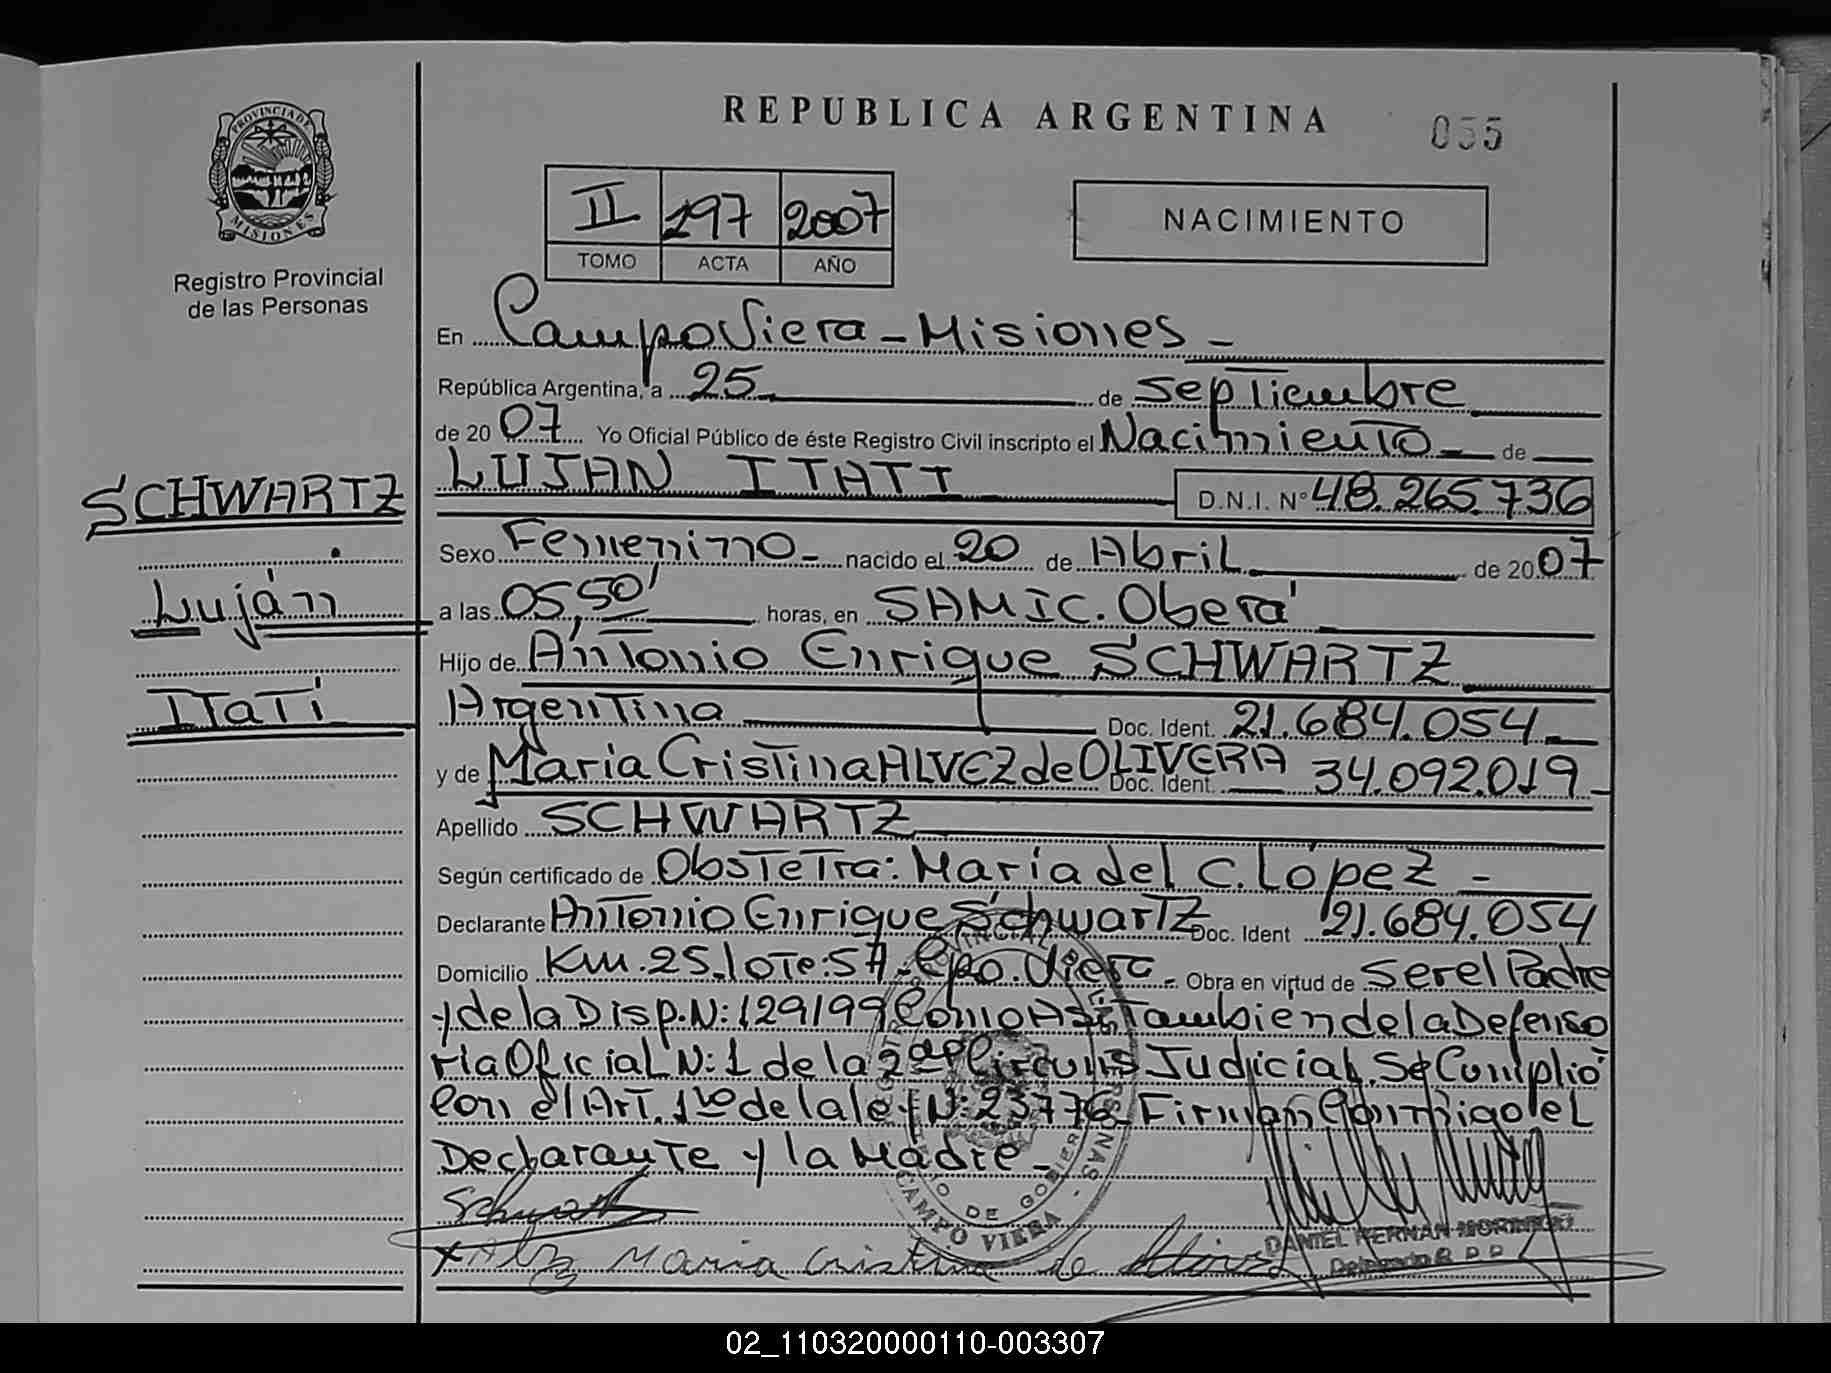 REPUBLICA ARGENTINA
055
PROVINCIA DE
MISIONES
Registro Provincial
de las Personas
II 297 2007
TOMO ACTA AÑO
NACIMIENTO
En Campo Viera - Misiones -
República Argentina, a 25 de Septiembre
de 2007 Yo Oficial Público de éste Registro Civil inscripto el Nacimiento de
LUJAN ITATI D.N.I. N° 48.265.736
SCHWARTZ
Luján
Itatí
Sexo Femenino - nacido el 20 de Abril de 2007
a las 05,50' horas, en SAMIC. Oberá
Hijo de Antonio Enrique SCHWARTZ
Argentina Doc. Ident. 21.684.054
y de María Cristina ALVEZ de OLIVERA Doc. Ident. 34.092.019
Apellido SCHWARTZ
Según certificado de Obstetra: María del C. López -
Declarante Antonio Enrique Schwartz Doc. Ident 21.684.054
Domicilio Km. 25. lote: 57A - Cpo. Viera - Obra en virtud de Ser el Padre
y de la Disp. N: 129/99 Como Asi También de la Defenso
ria Oficial N: 1 de la 2da Circuns Judicial. Se Cumplió
Con el Art. 1ro de la ley N: 23776 Firman Conmigo el
Declarante y la Madre -
Schwartz
x Alvz Maria Cristina de
CAMPO VIERA
DANIEL HERNAN
Delegado R.P.P.
02_110320000110-003307